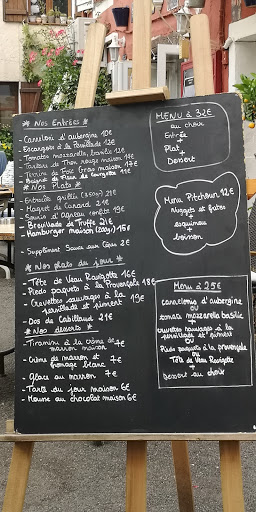 * Nos Entrées *
- Canneloni d'aubergine 10€
- Escargots à la Persillade 12€
- Tomates mozzarella, basilic 12€
- Tartare de Thon rouge maison 18€
- Terrine de Foie Gras maison 17€
- Beignets de Fleurs de courgette 11€
* Nos Plats *
- Entrecôte grillée (350gr) 21€
- Magret de Canard 21€
- Souris d'agneau confite 19€
- Brouillade de Truffe 21€
- Hamburger maison (200gr) 15€
- Supplément Sauce aux Cèpes 2€
* Nos plats du jour *
- Tête de Veau Ravigote 16€
- Pieds paquets à la Provençale 18€
- Crevettes sauvages à la
persillade et piment 19€
- Dos de Cabillaud 21€
* Nos desserts *
- Tiramisu à la crème de
marron maison 7€
- Crème de marron et
fromage blanc 7€
- Glace au marron 7€
- Tarte du jour maison 6€
- Mousse au chocolat maison 6€
MENU à 32€
au choix
Entrée
+
Plat
+
Dessert
Menu Pitchoun 12€
nuggets et frites
+
esquimau
+
boisson
Menu à 25€
cannelonis d'aubergine
ou
tomate mozzarella basilic
+
crevettes sauvages à la
persillade et piment
ou
Pieds paquets à la provençale
ou
Tête de Veau Ravigote
+
Dessert au choix